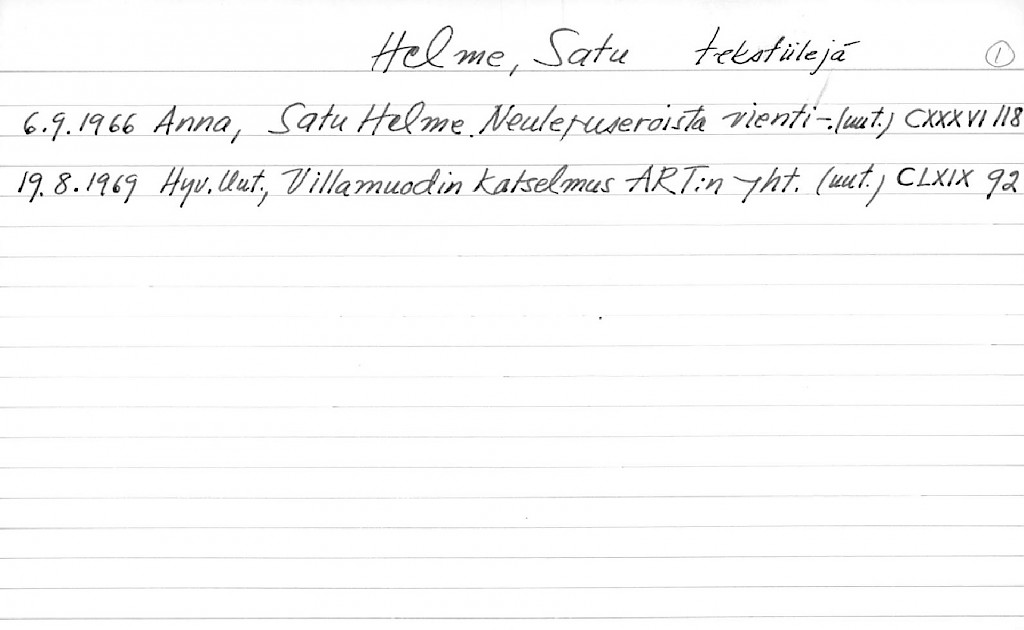 Helme, Satu tekstiilejä 1
6.9.1966 Anna, Satu Helme. Neulepuseroista vienti-.(uut.) CXXXVI 118
19.8.1969 Hyv. Uut., Villamuodin katselmus ART:n yht. (uut.) CLXIX 92